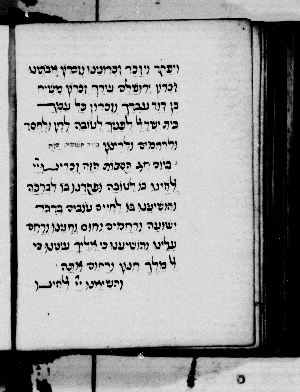 ויפקד ויזכר זכרוננו וזכרון אבותינו
זכרון ירושלם עירך זכרון משיח
בן דוד עבדך וזכרון כל עמך
בית ישר׳ לפניך לטובה לחן ולחסד
ולרחמים
ביום חג הסכות הזה זכרינו יי׳
אלהינו בו לטובה ופקדנו בו לברכה
והושיענו בו לחיים טובים בדבר
ישועה ורחמים וחוס וחננו ורחם
עלינו והושיענו כי אליך עינינו כי
אל מלך חנון ורחום אתה
והשיאנו יי׳ אלהינו